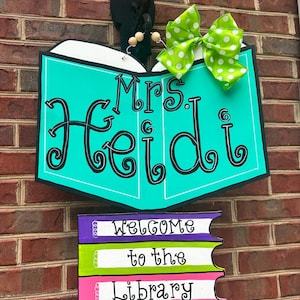 Mrs.
Heidi
Welcome
to the
Library